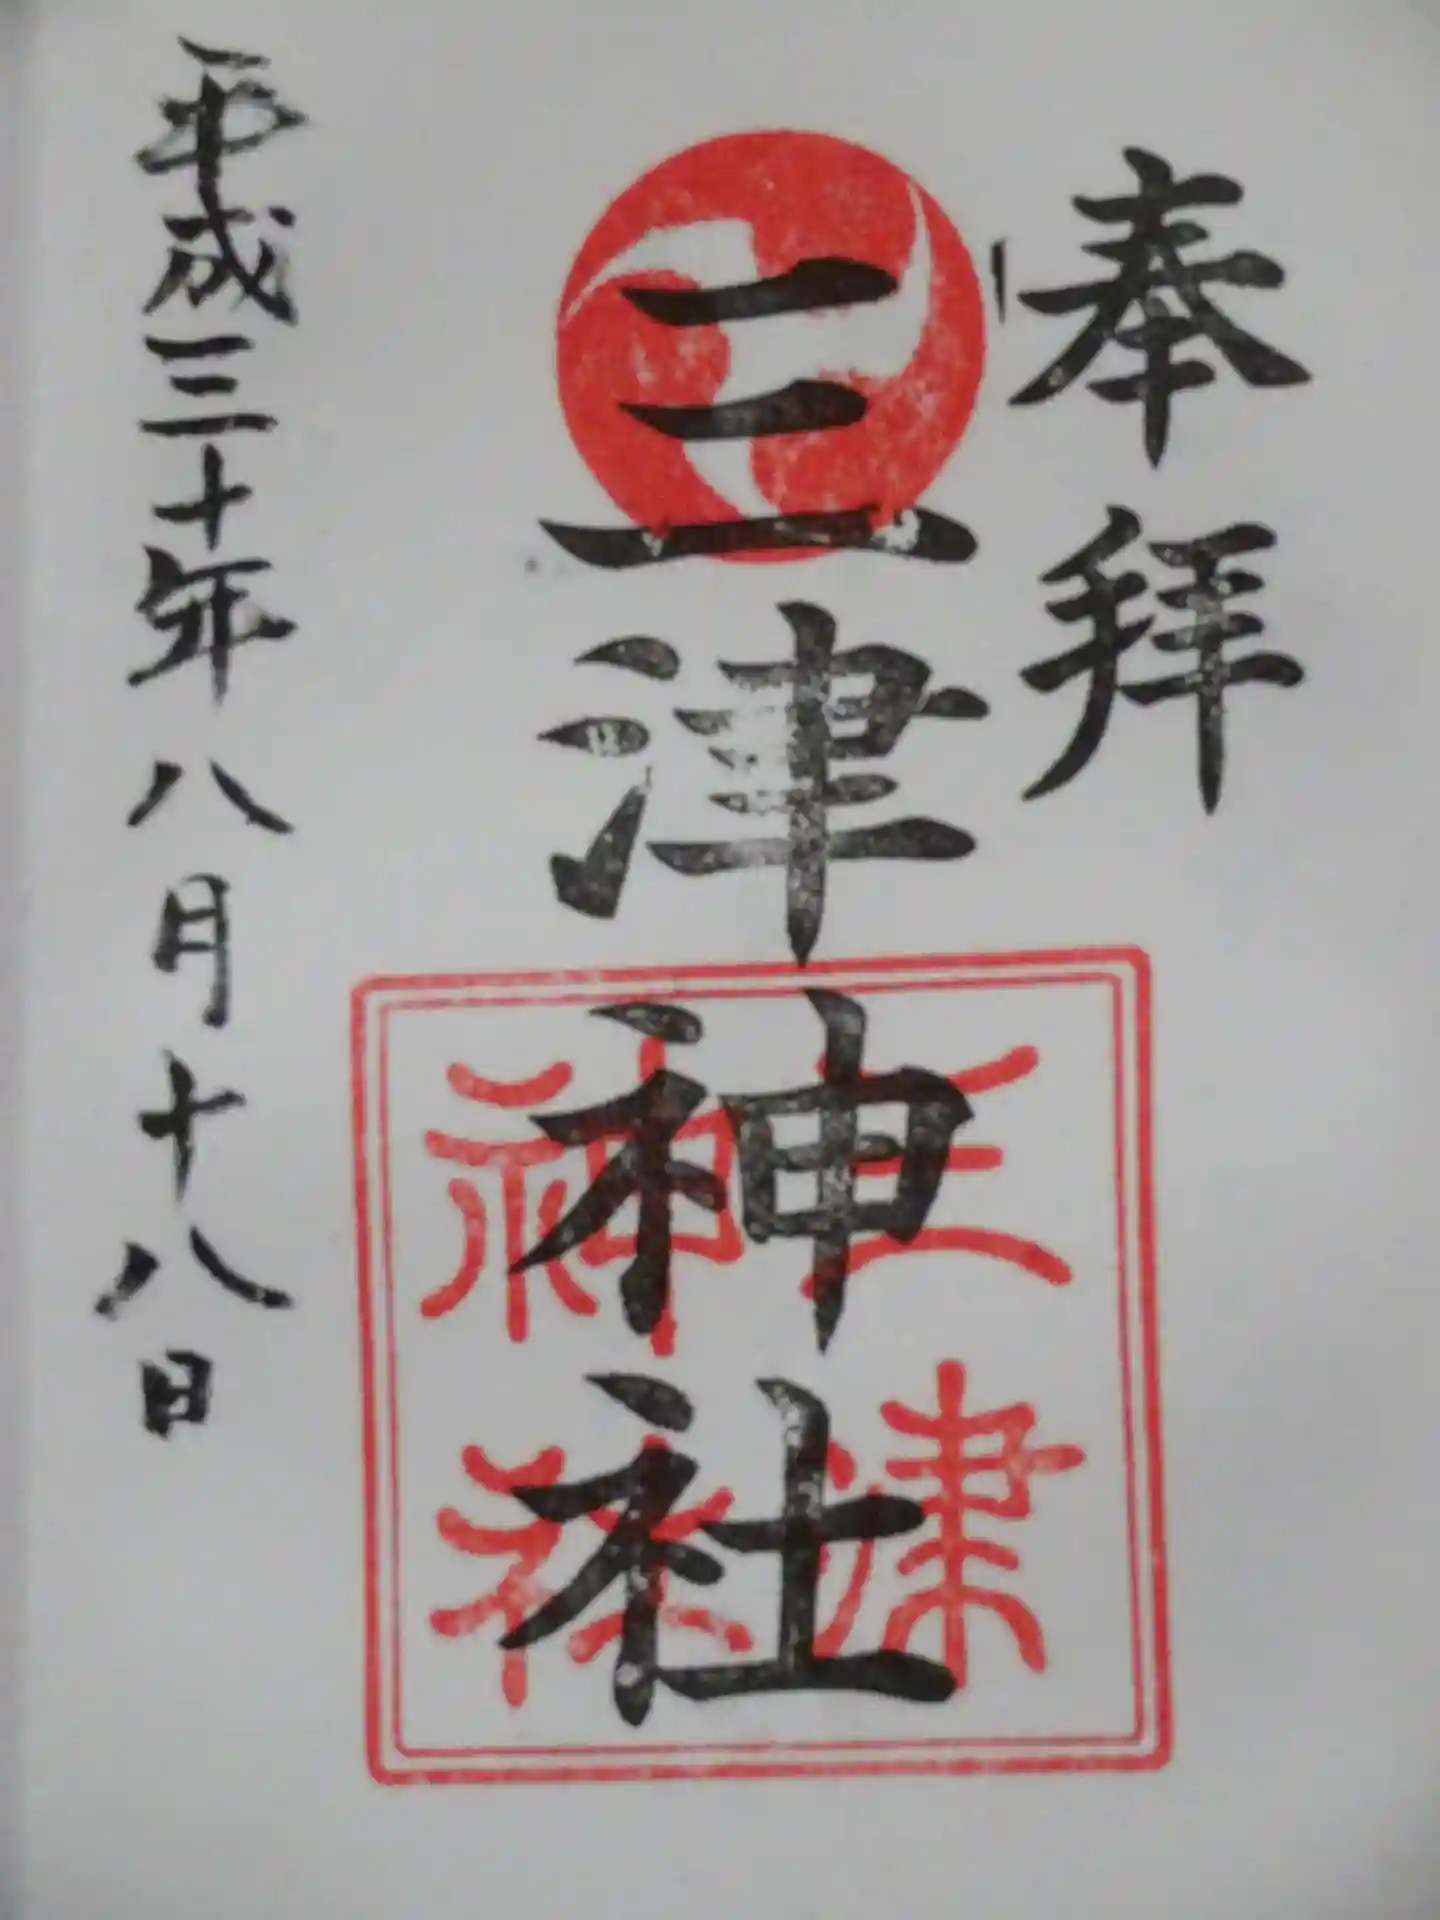 奉拝
三津神社
三津
神社
平成三十年八月十八日